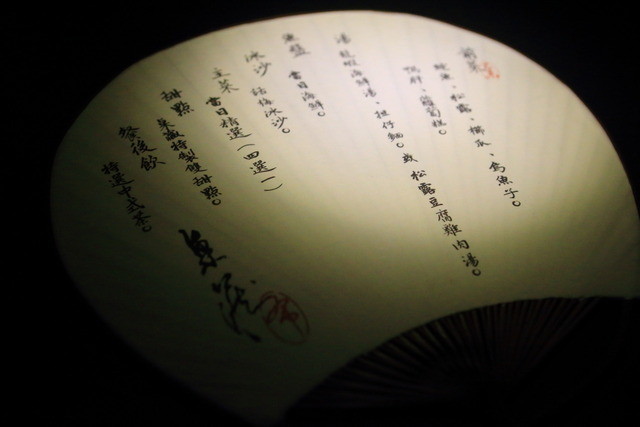 前菜
松露、櫛瓜、烏魚子。
鴨肝、葡萄
湯 龍蝦海鮮湯、担仔麵。或 松露豆腐雞肉湯。
當日海鮮。
冰沙 話梅冰沙。
主菜 當日精選(四選一)
甜點 特製雙甜點。
餐後飲 特選中式茶。